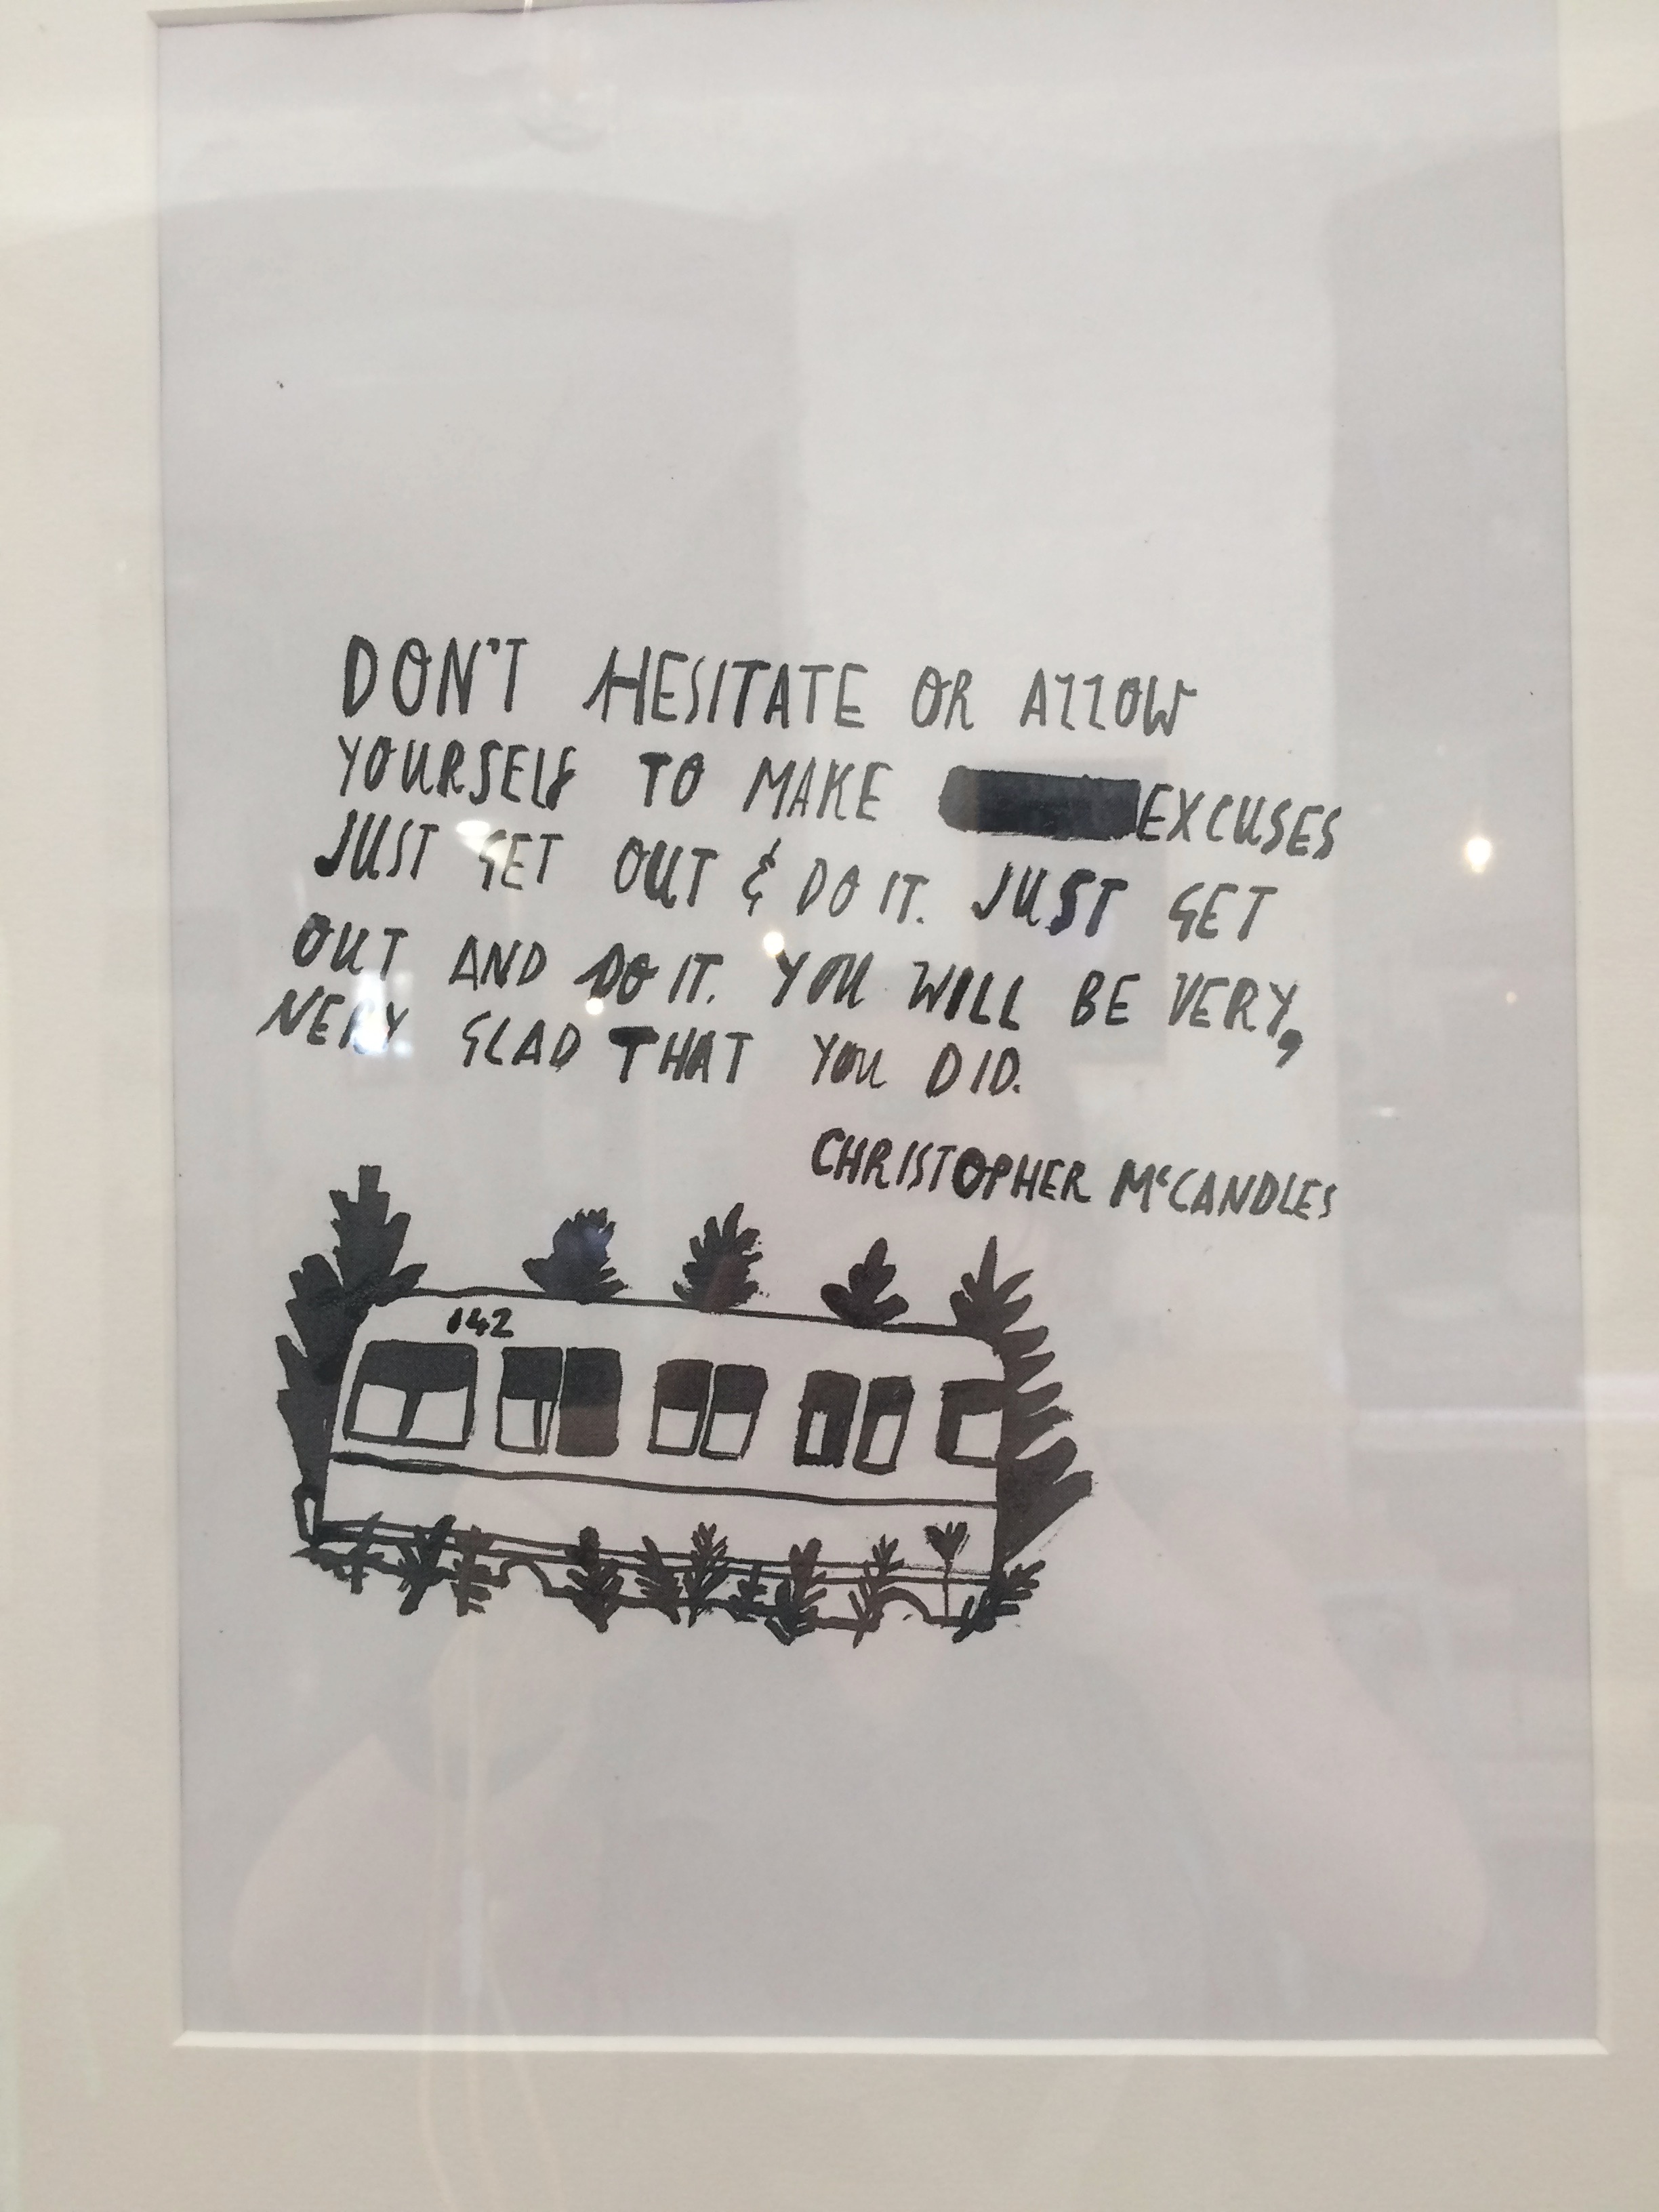 DON'T HESITATE OR ALLOW
YOURSELF TO MAKE EXCUSES
JUST GET OUT & DO IT. JUST GET
OUT AND DO IT. YOU WILL BE VERY,
VERY GLAD THAT YOU DID.
CHRISTOPHER McCANDLES
142